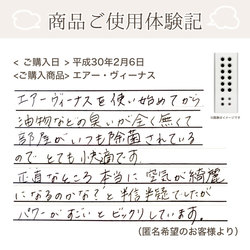 商品ご使用体験記
< ご購入日 > 平成30年2月6日
<ご購入商品> エアー・ヴィーナス
エアーヴィーナスを使い始めてから
油物などの臭いが全く無くて
部屋がいつも除菌されている
のでとても快適です。
正直なところ本当に空気が綺麗
になるのかな?と半信半疑でしたが
パワーがすごいとビックリしています。
(匿名希望のお客様より)